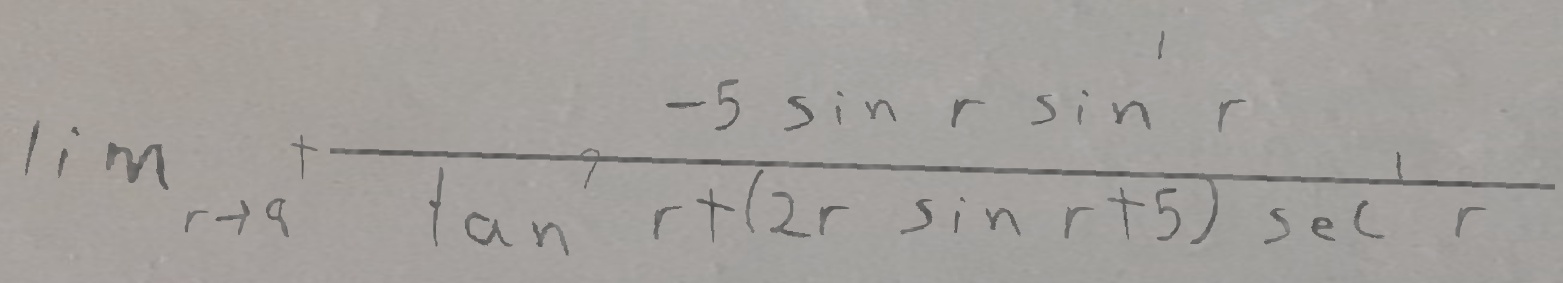 \lim_{r \to 9^{+}} \frac{-5 \sin r \sin^{1} r}{\tan^{7} r+(2r \sin r+5) \sec^{1} r}